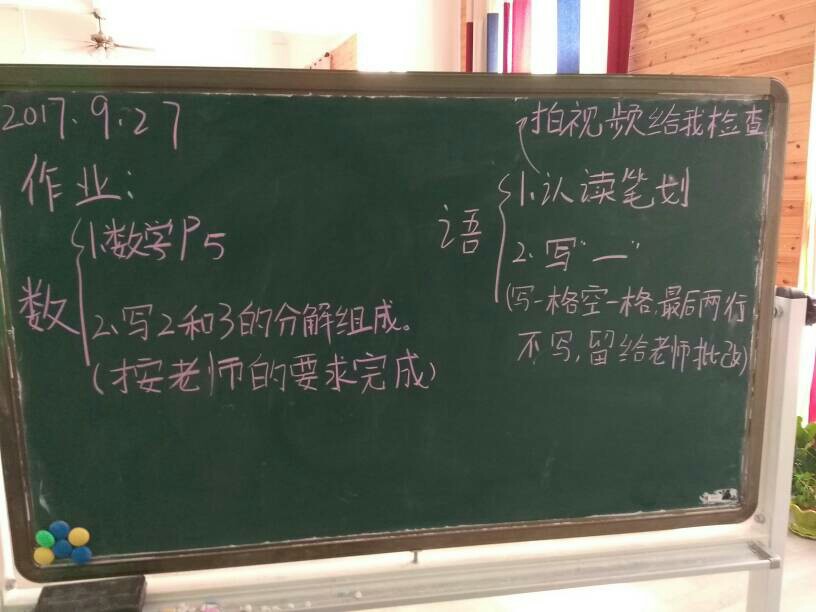 2017.9.27
作业:
数
1.数学P5
2.写2和3的分解组成。
(按老师的要求完成)
语
拍视频给我检查
1.认读笔划
2.写“一”
(写一格空一格,最后两行
不写,留给老师批改)